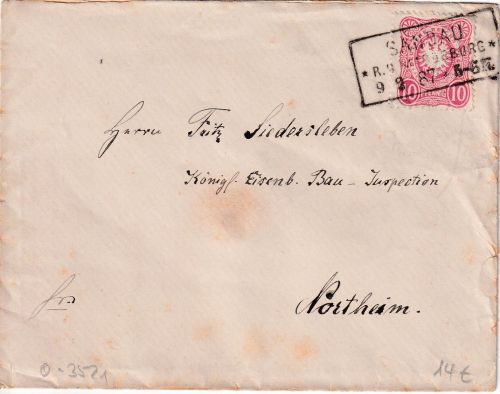 SAGENAU
* R.B. MAGDEBURG *
9 2 87 5-6N.
10 10
Herrn Fritz Siedersleben
Königl. Eisenb. Bau - Inspection
frs
Northeim.
0-3521
14€